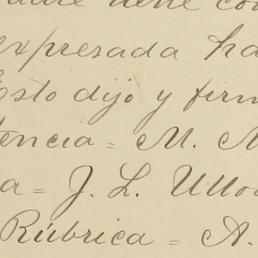 tiene con
expresada ha
Esto dijo y firm
tencia = M. M
a = J. L. Ullo
Rúbrica = A.